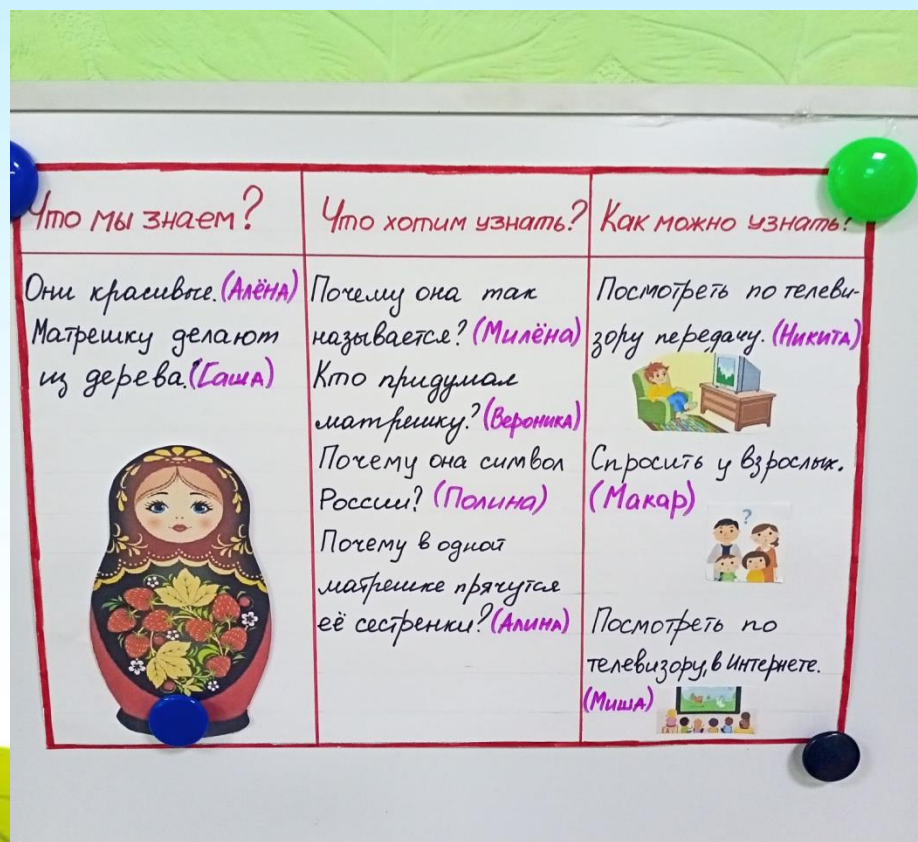 Что мы знаем?
Они красивые. (Алёна)
Матрешку делают
из дерева. (Саша)
Что хотим узнать?
Почему она так
называется? (Милёна)
Кто придумал
матрешку? (Вероника)
Почему она символ
России? (Полина)
Почему в одной
матрешке прячутся
её сестренки? (Алина)
Как можно узнать?
Посмотреть по телеви-
зору передачу. (Никита)
Спросить у взрослых.
(Макар)
?
Посмотреть по
телевизору, в Интернете.
(Миша)